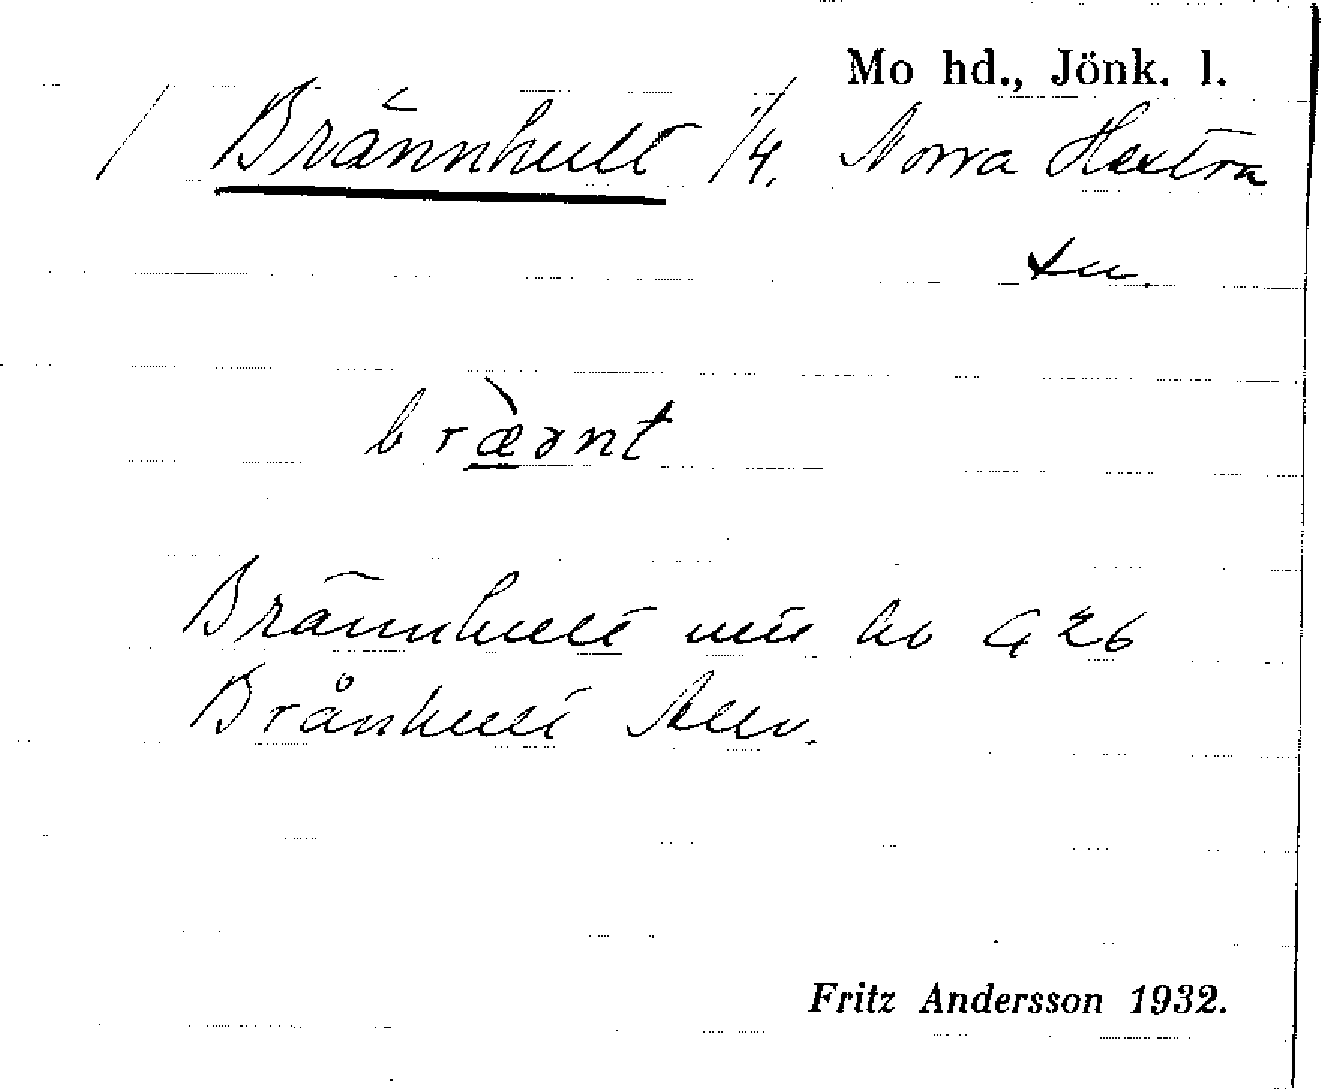 Mo hd., Jönk. l.
/ Brännhult 1/4. Norra Hestra
sn.
bræ̀ənt
Brännhult
Brånhult
Fritz Andersson 1932.